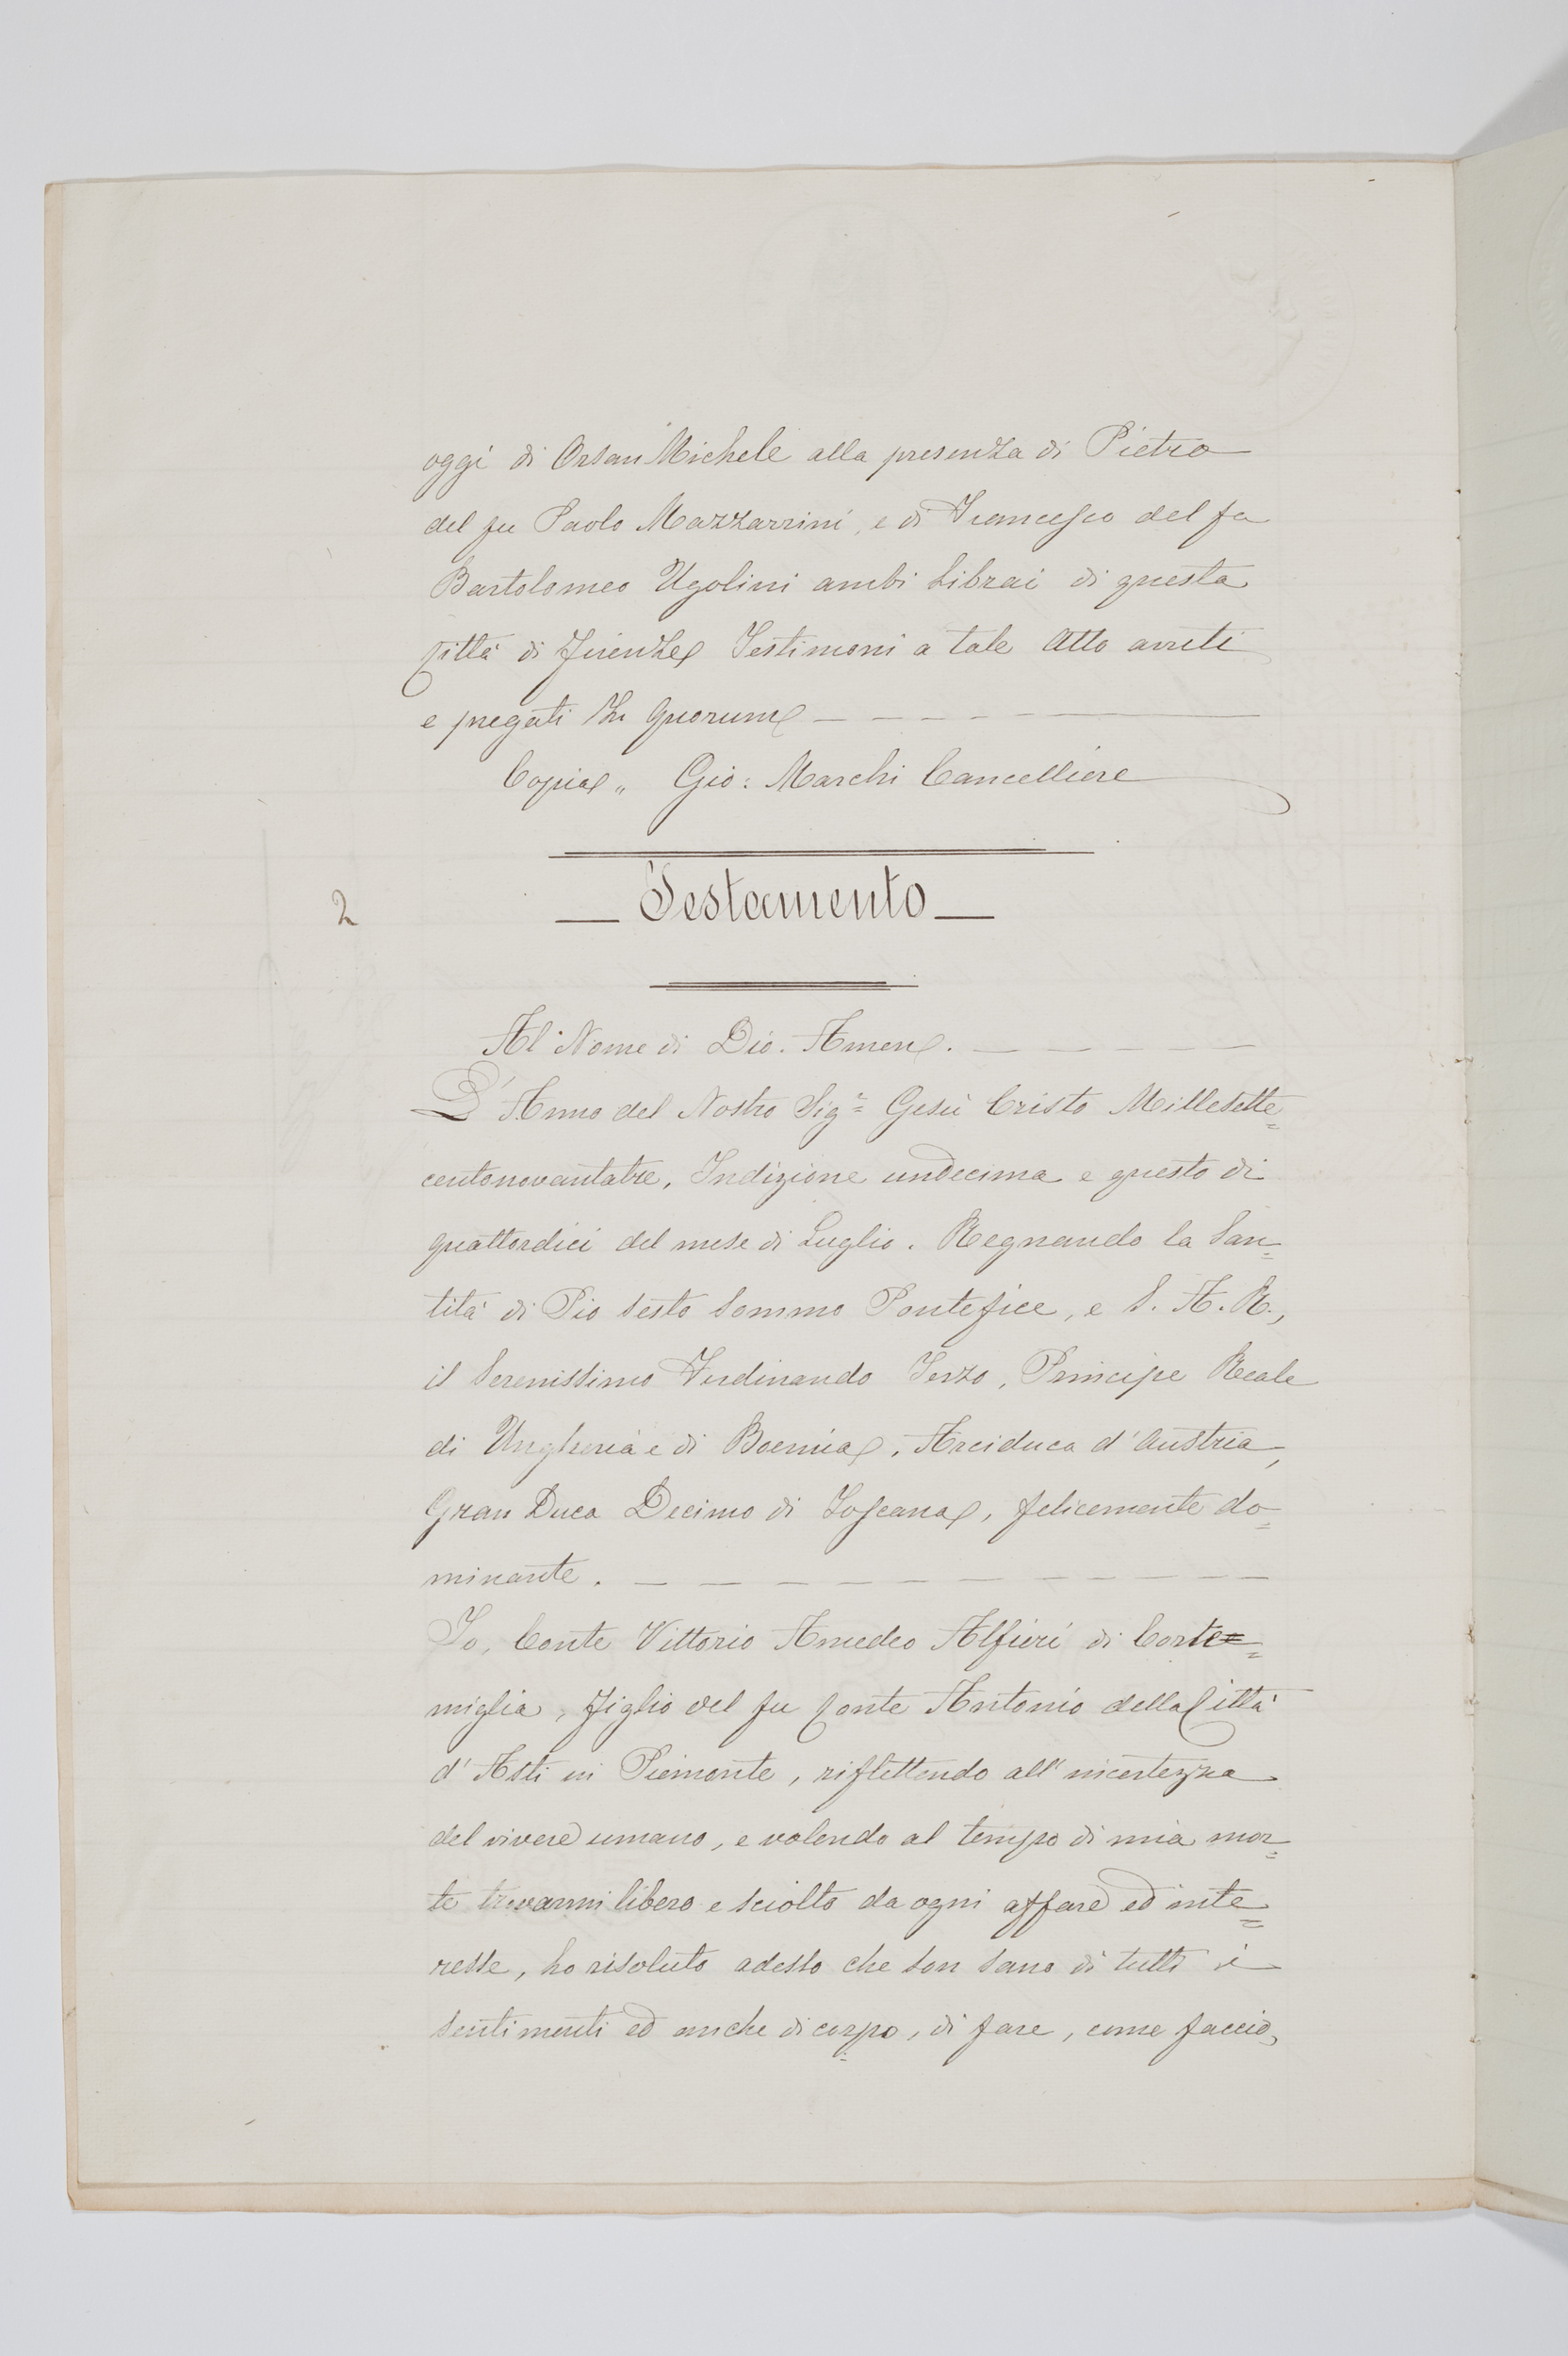 oggi di Orsan Michele alla presenza di Pietro
del fu Paolo Mazzarrini, e di Francesco del fu
Bartolomeo Ugolini ambi Librai di questa
Città di Firenze Testimoni a tale Atto avuti
e pregati In quorum
Copia „ Gio: Marchi Cancelliere
2
Testamento
Al Nome di Dio. Amen.
L'Anno del Nostro Sigr= Gesù Cristo Millesette=
centonovantatre, Indizione undecima e questo di
quattordici del mese di Luglio. Regnando la San=
tità di Pio sesto Sommo Pontefice, e S. A. R.,
il Serenissimo Ferdinando Terzo, Principe Reale
di Ungheria e di Boemia, Arciduca d'Austria,
Gran Duca Decimo di Toscana, felicemente do=
minante.
Io, Conte Vittorio Amedeo Alfieri di Corte=
miglia, figlio del fu Conte Antonio della Città
d'Asti in Piemonte, riflettendo all'incertezza
del vivere umano, e volendo al tempo di mia mor=
te trovarmi libero e sciolto da ogni affare ed inte=
resse, ho risoluto adesso che son sano di tutti i
sentimenti ed anche di corpo, di fare, come faccio,